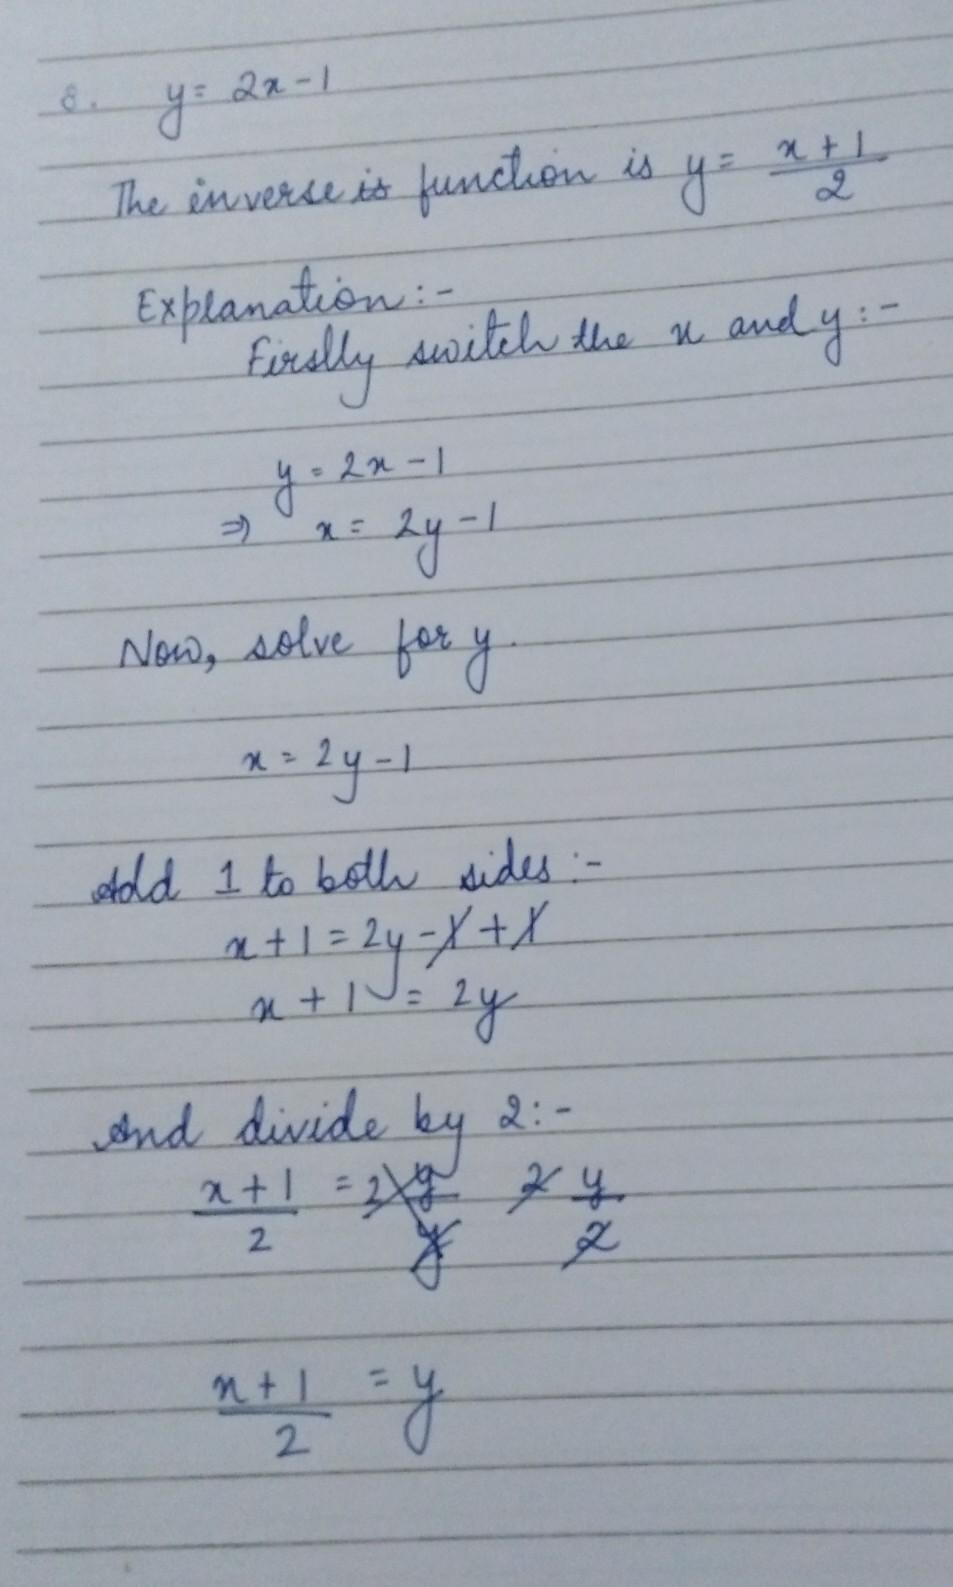 8. y = 2x - 1
The inverse is function is y = x + 1 / 2
Explanation :-
Firslly switch the x and y :-
y = 2x - 1
⇒ x = 2y - 1
Now, solve for y.
x = 2y - 1
Add 1 to both sides :-
x + 1 = 2y - 1 + 1
x + 1 = 2y
And divide by 2 :-
x + 1 / 2 = 2 y / 2
x + 1 / 2 = y